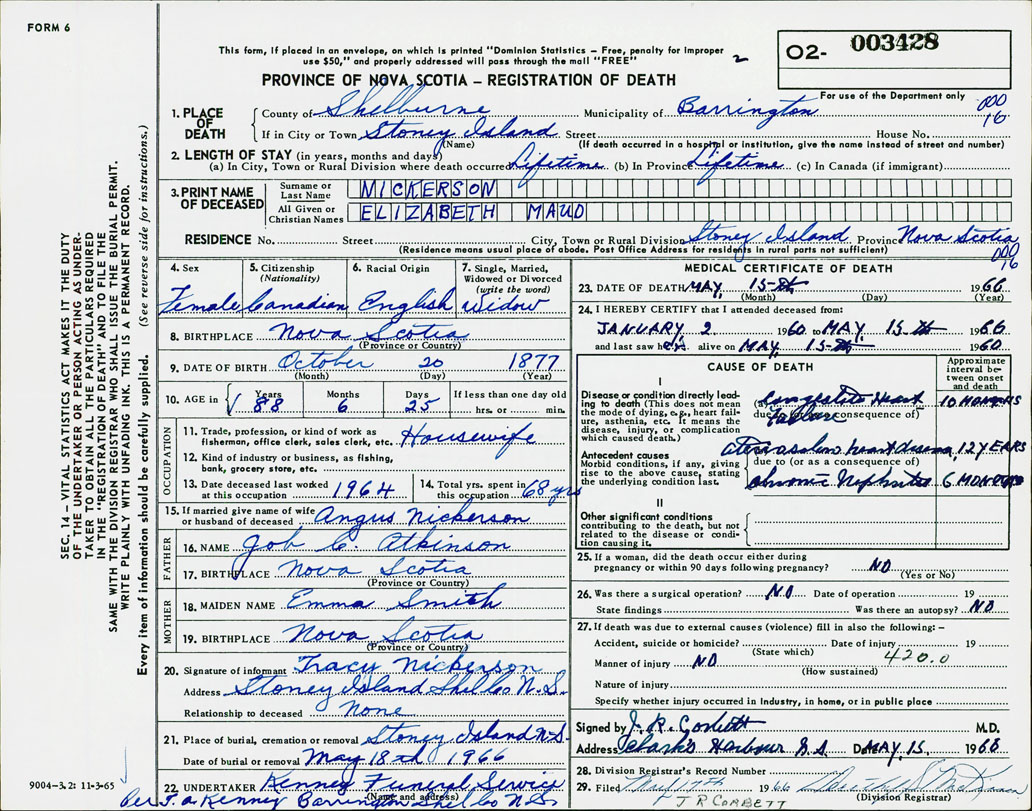 FORM 6
This form, if placed in an envelope, on which is printed "Dominion Statistics – Free, penalty for improper
use $50," and properly addressed will pass through the mail "FREE"
2
O2- 003428
PROVINCE OF NOVA SCOTIA – REGISTRATION OF DEATH
For use of the Department only
1. PLACE OF DEATH
County of Shelburne Municipality of Barrington 000 16
If in City or Town Stoney Island Street House No.
(Name) (If death occurred in a hospital or institution, give the name instead of street and number)
2. LENGTH OF STAY (in years, months and days)
(a) In City, Town or Rural Division where death occurred Lifetime (b) In Province Lifetime (c) In Canada (if immigrant)
3. PRINT NAME OF DECEASED
Surname or Last Name NICKERSON
All Given or Christian Names ELIZABETH MAUD
RESIDENCE No. Street City, Town or Rural Division Stoney Island Province Nova Scotia
(Residence means usual place of abode. Post Office Address for residents in rural parts not sufficient) 000 16
4. Sex Female
5. Citizenship (Nationality) Canadian
6. Racial Origin English
7. Single, Married, Widowed or Divorced (write the word) Widow
8. BIRTHPLACE Nova Scotia
(Province or Country)
9. DATE OF BIRTH October 20 1877
(Month) (Day) (Year)
10. AGE in Years 88 Months 6 Days 25 If less than one day old hrs. or min.
OCCUPATION
11. Trade, profession, or kind of work as fisherman, office clerk, sales clerk, etc. Housewife
12. Kind of industry or business, as fishing, bank, grocery store, etc.
13. Date deceased last worked at this occupation 1964
14. Total yrs. spent in this occupation 68 yrs
15. If married give name of wife or husband of deceased Angus Nickerson
FATHER
16. NAME Job C. Atkinson
17. BIRTHPLACE Nova Scotia
(Province or Country)
MOTHER
18. MAIDEN NAME Emma Smith
19. BIRTHPLACE Nova Scotia
(Province or Country)
20. Signature of informant Tracy Nickerson
Address Stoney Island Shelb Co N.S.
Relationship to deceased None
21. Place of burial, cremation or removal Stoney Island N.S.
Date of burial or removal May 18th 1966
22. UNDERTAKER Kenney Funeral Service
(Name and address)
per J. A Kenney Barrington Shelb Co N.S.
MEDICAL CERTIFICATE OF DEATH
23. DATE OF DEATH MAY 15th 1966
(Month) (Day) (Year)
24. I HEREBY CERTIFY that I attended deceased from:
JANUARY 2 1960 to MAY 15th 1966
and last saw her alive on MAY 15th 1960
CAUSE OF DEATH
Approximate interval between onset and death
I
Disease or condition directly leading to death (This does not mean the mode of dying, e.g., heart failure, asthenia, etc. It means the disease, injury, or complication which caused death.)
(a) Congestive Heart Failure 10 MONTHS
due to (or as a consequence of)
Antecedent causes
Morbid conditions, if any, giving rise to the above cause, stating the underlying condition last.
heart disease, 12 YEARS
due to (or as a consequence of)
chronic Nephritis 6 MONTHS
II
Other significant conditions contributing to the death, but not related to the disease or condition causing it.
25. If a woman, did the death occur either during pregnancy or within 90 days following pregnancy? NO
(Yes or No)
26. Was there a surgical operation? NO Date of operation 19
State findings Was there an autopsy? NO
27. If death was due to external causes (violence) fill in also the following: –
Accident, suicide or homicide? Date of injury 19
(State which) 420.0
Manner of injury NO
(How sustained)
Nature of injury
Specify whether injury occurred in Industry, in home, or in public place
Signed by J. R. Corbett M.D.
Address Clarks Harbour N.S. Date MAY 15, 1966
28. Division Registrar's Record Number
29. Filed May 17th 1966
(Division Registrar)
J R CORBETT
SEC. 14 – VITAL STATISTICS ACT MAKES IT THE DUTY
OF THE UNDERTAKER OR PERSON ACTING AS UNDER-
TAKER TO OBTAIN ALL THE PARTICULARS REQUIRED
IN THE "REGISTRATION OF DEATH" AND TO FILE THE
SAME WITH THE DIVISION REGISTRAR WHO SHALL ISSUE THE BURIAL PERMIT.
WRITE PLAINLY WITH UNFADING INK. THIS IS A PERMANENT RECORD.
Every item of information should be carefully supplied. (See reverse side for instructions.)
9004–3.2: 11-3-65